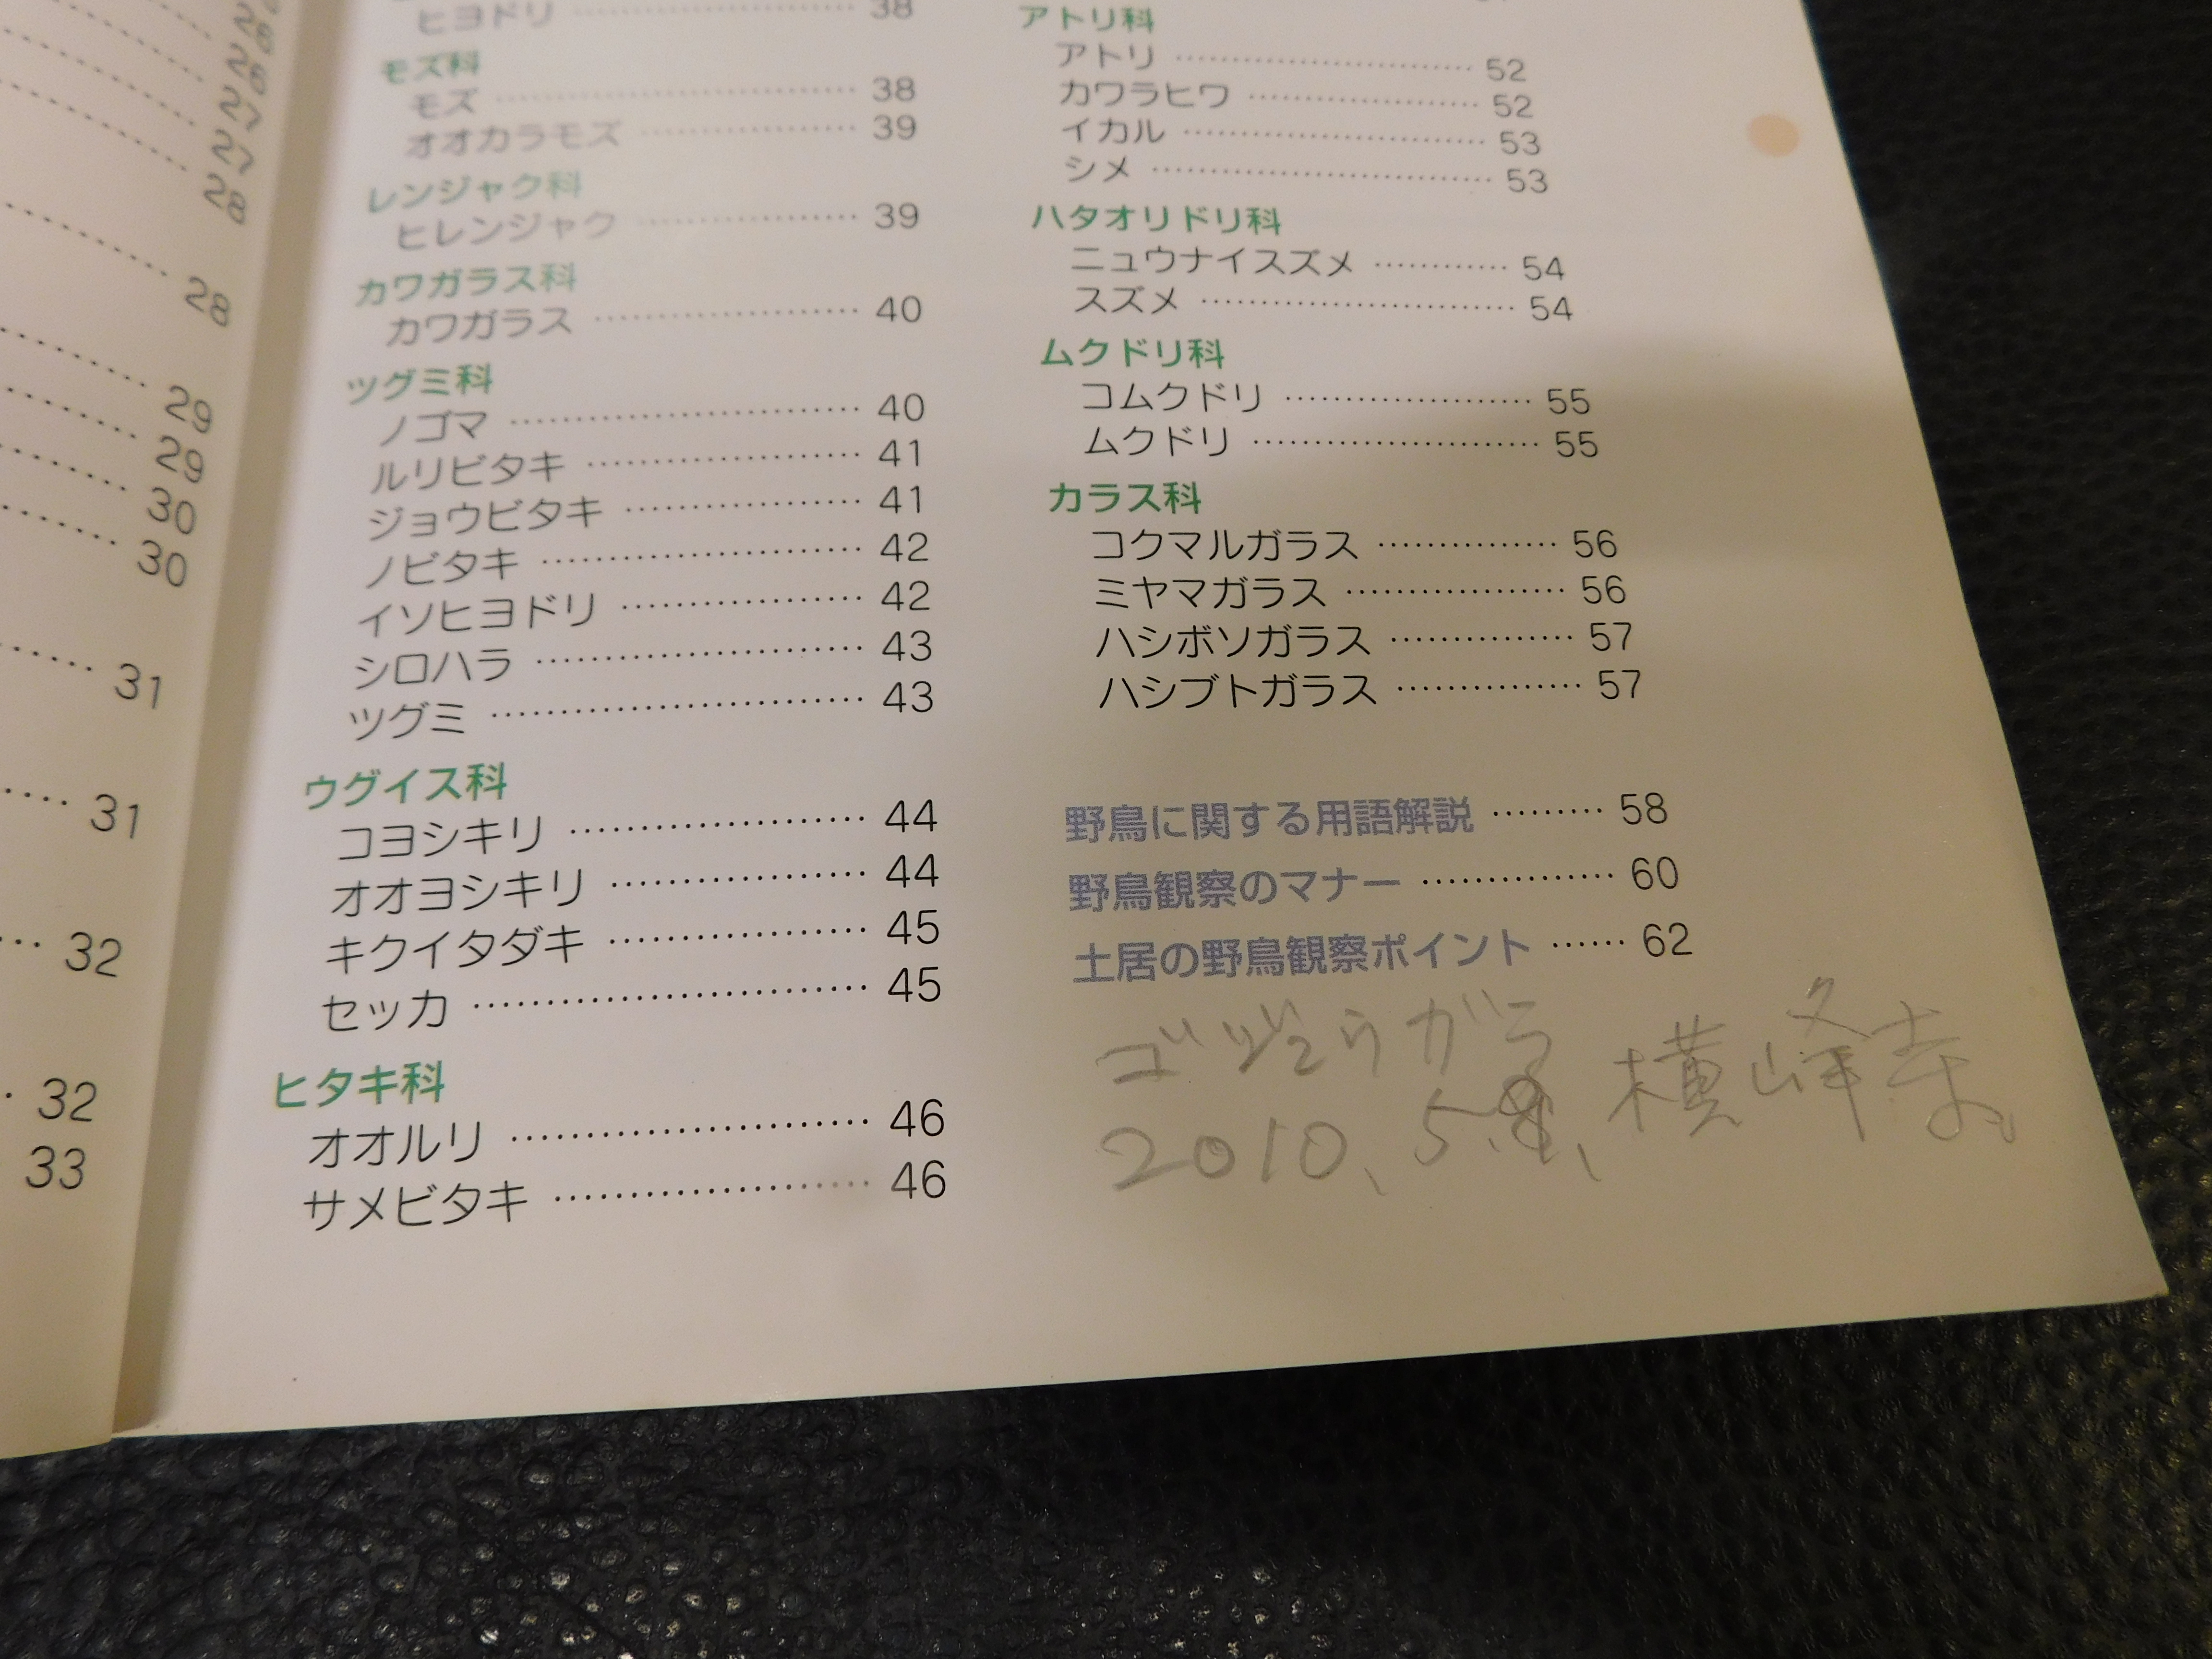 28
28
29
29
30
30
31
31
32
32
33
ヒヨドリ 38
モズ科
モズ 38
オオカラモズ 39
レンジャク科
ヒレンジャク 39
カワガラス科
カワガラス 40
ツグミ科
ノゴマ 40
ルリビタキ 41
ジョウビタキ 41
ノビタキ 42
イソヒヨドリ 42
シロハラ 43
ツグミ 43
ウグイス科
コヨシキリ 44
オオヨシキリ 44
キクイタダキ 45
セッカ 45
ヒタキ科
オオルリ 46
サメビタキ 46
アトリ科
アトリ 52
カワラヒワ 52
イカル 53
シメ 53
ハタオリドリ科
ニュウナイスズメ 54
スズメ 54
ムクドリ科
コムクドリ 55
ムクドリ 55
カラス科
コクマルガラス 56
ミヤマガラス 56
ハシボソガラス 57
ハシブトガラス 57
野鳥に関する用語解説 58
野鳥観察のマナー 60
土居の野鳥観察ポイント 62
ゴジュウガラ
2010、5、 横峰寺。